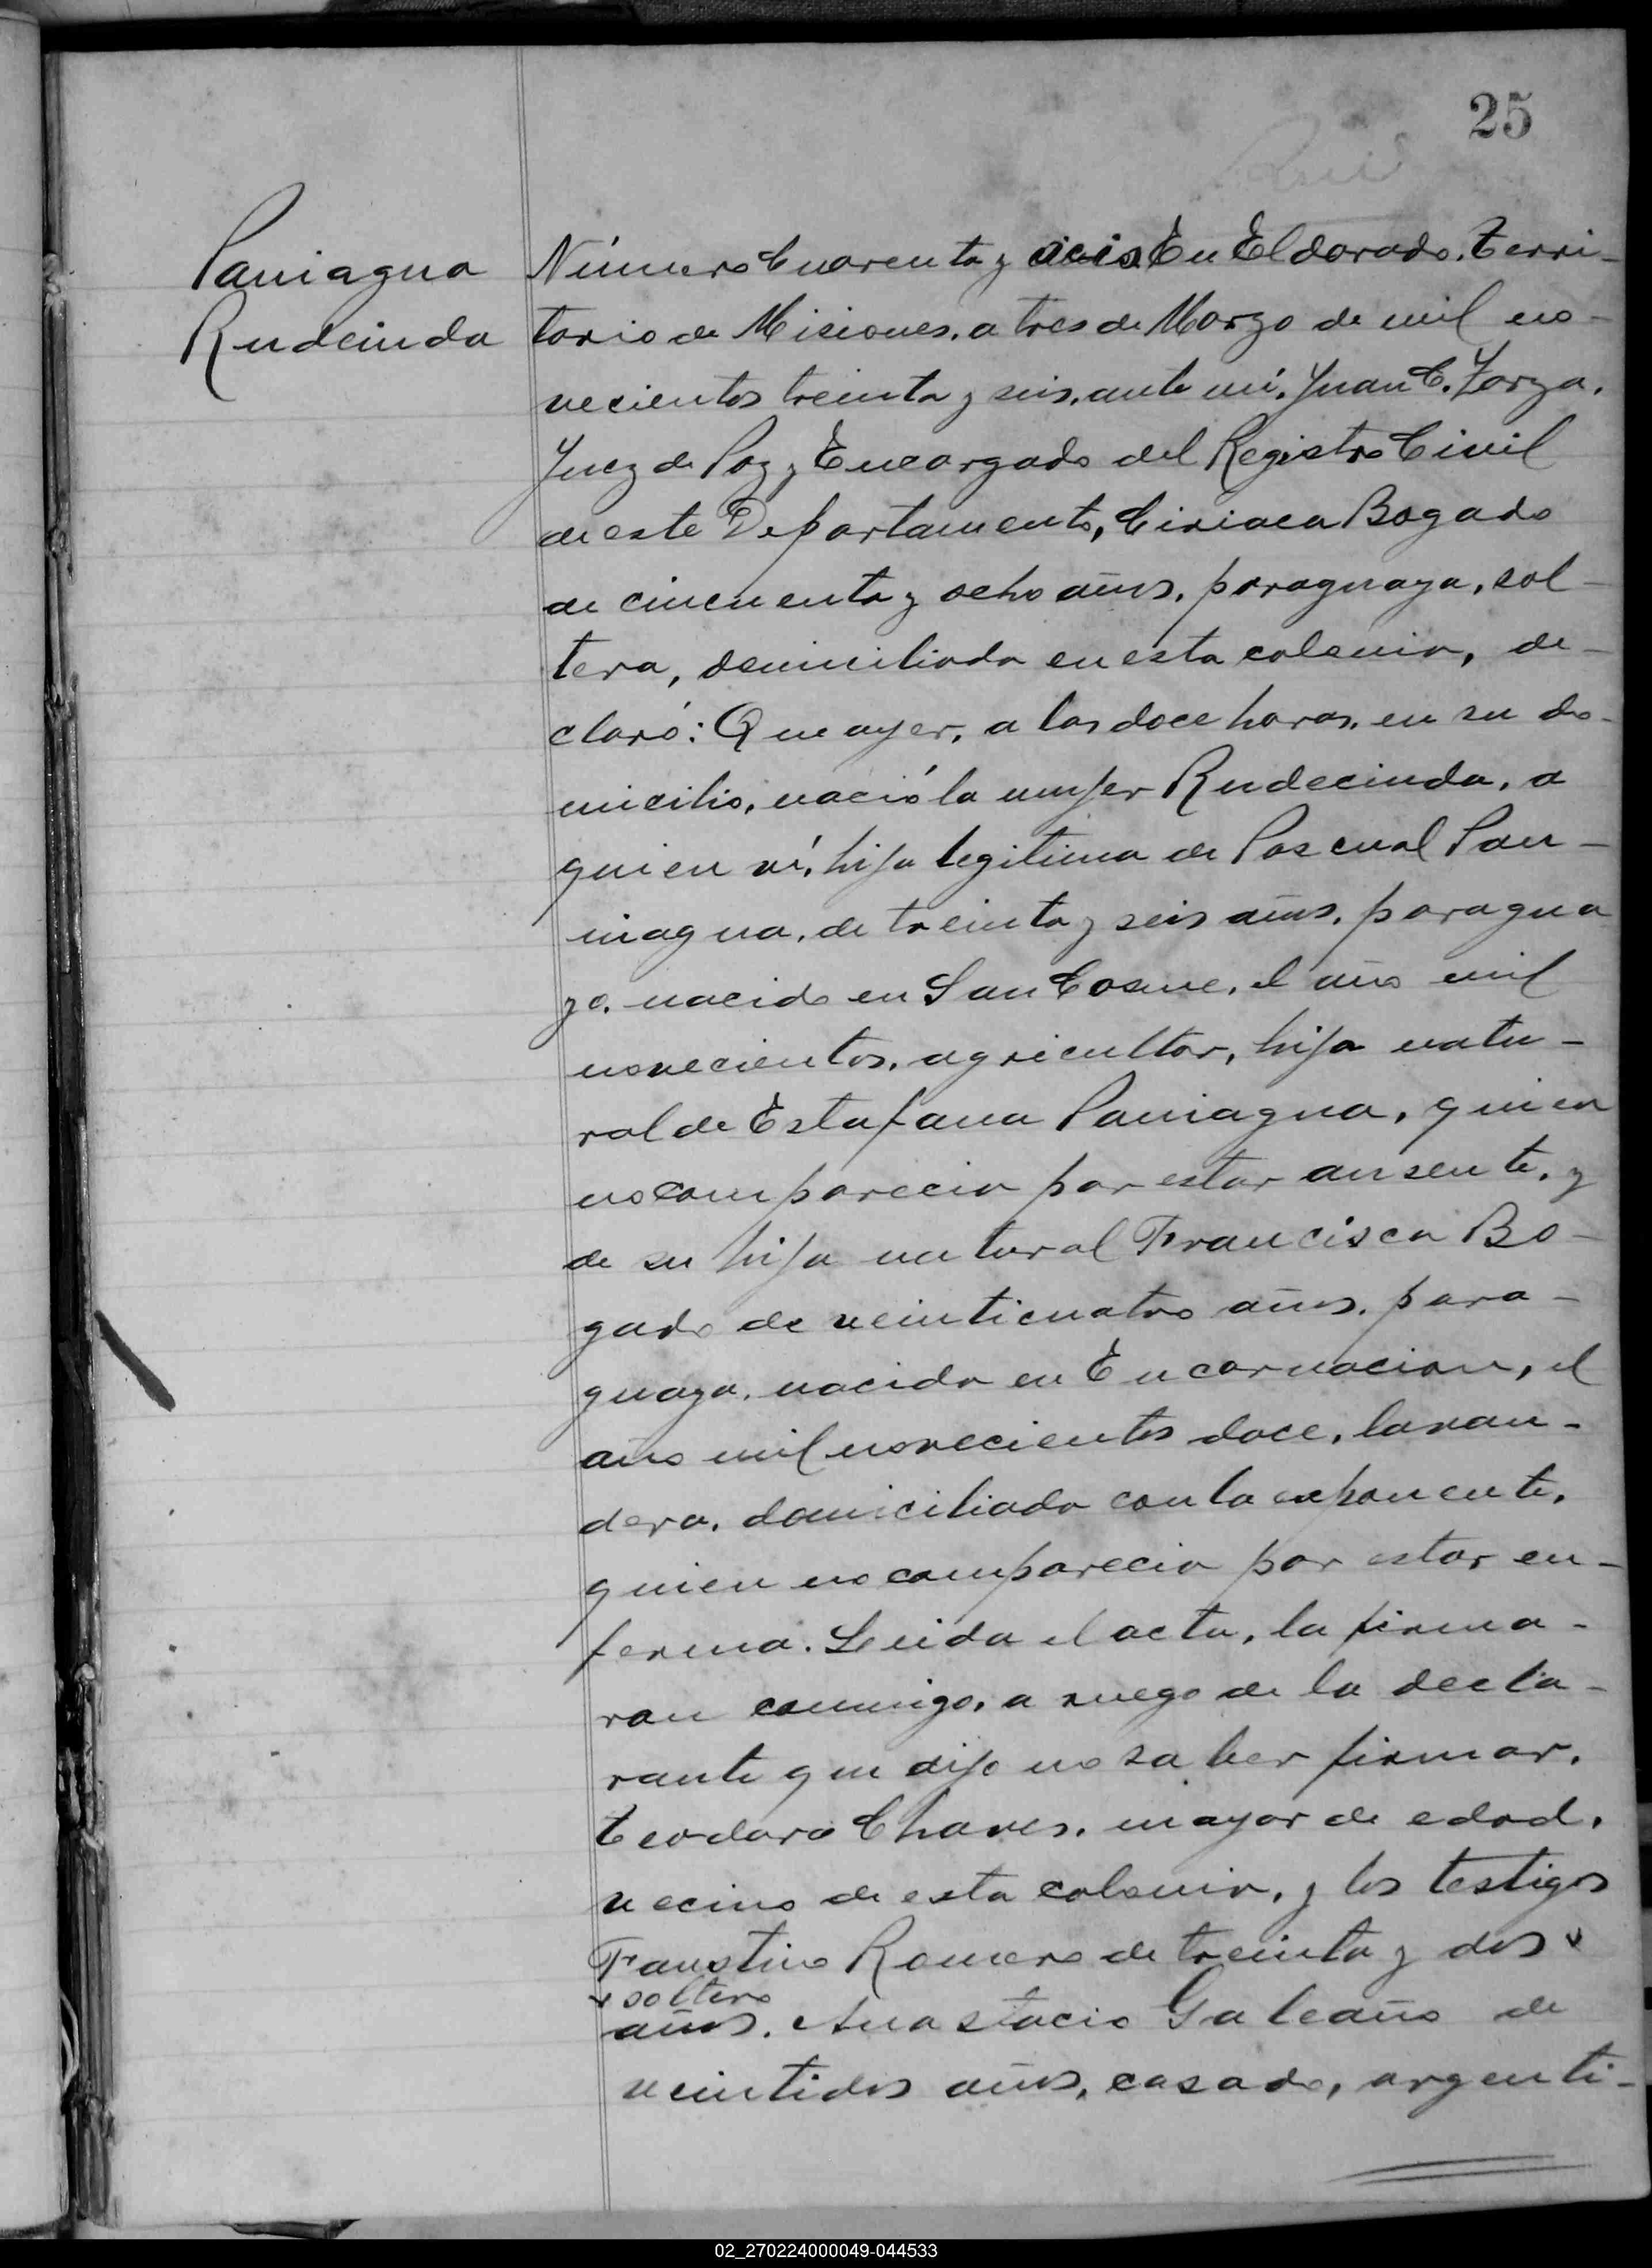 25
Paniagua
Rudecinda
Número Cuarenta y seis. En Eldorado. Terri-
torio de Misiones, a tres de Marzo de mil no-
vecientos treinta y seis, ante mí, Juan C. Zarza.
Juez de Paz y Encargado del Registro Civil
de este Departamento, Ciriaca Bogado
de cincuenta y ocho años, paraguaya, sol-
tera, domiciliada en esta colonia, de-
claró: Que ayer, a las doce horas, en su do-
micilio, nació la mujer Rudecinda, a
quien ví, hija legitima de Pascual Pan-
niagua, de treinta y seis años, paragua
yo, nacido en San Cosme, el año mil
novecientos, agricultor, hijo natu-
ral de Estafana Paniagua, quien
no comparecio por estar ausente, y
de su hija natural Francisca Bo-
gado de veinticuatro años, para-
guaya, nacida en Encarnacion, el
año mil novecientos doce, lavan-
dera, domiciliada con la exponente,
quien no comparecio por estar en-
ferma. Leida el acta, la firma-
ron conmigo, a ruego de la decla-
rante que dijo no saber firmar,
Teodoro Chaves, mayor de edad,
vecino de esta colonia, y los testigos
Faustino Romero de treinta y dos
soltero
años, Anastacio Galeano de
veintidos años, casado, argenti-
02_270224000049-044533